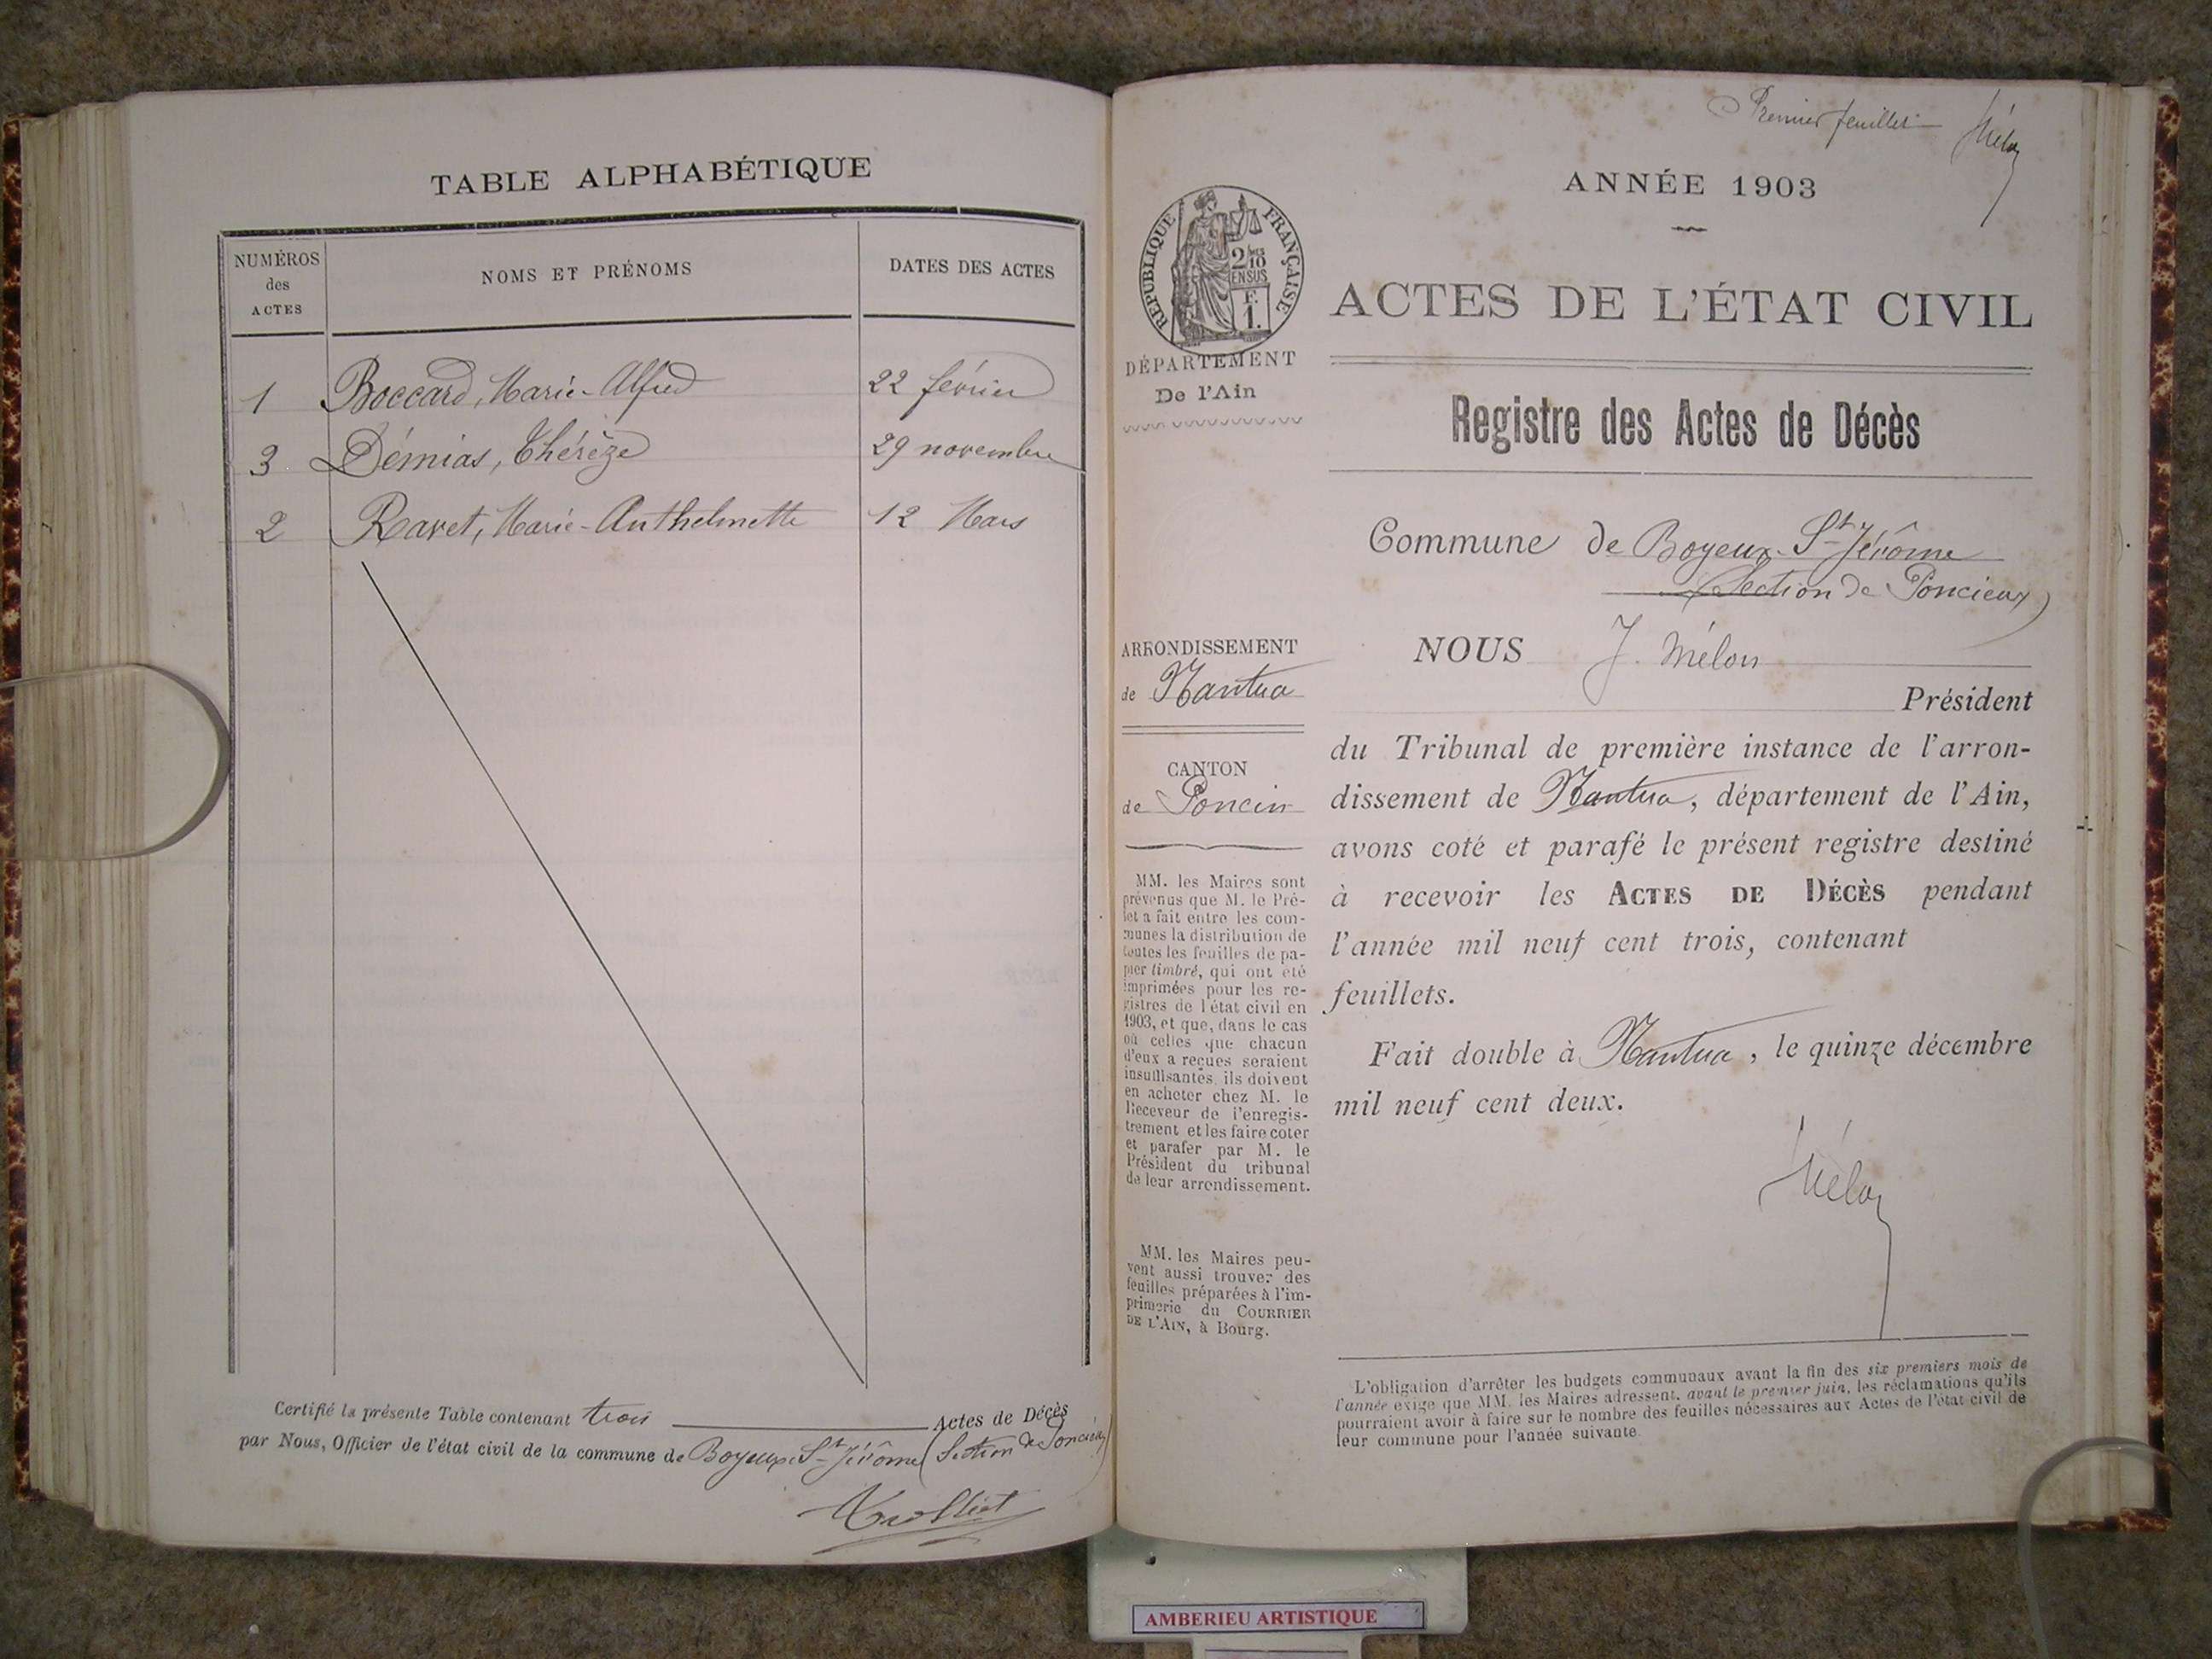 TABLE ALPHABÉTIQUE
NUMÉROS
des
ACTES
NOMS ET PRÉNOMS
DATES DES ACTES
1 Boccard, Marie-Alfred 22 février
3 Démias, Thérèze 29 novembre
2 Ravet, Marie-Anthelmette 12 Mars
Certifié la présente Table contenant trois Actes de Décès
par Nous, Officier de l'état civil de la commune de Boyeux-St-Jérôme (Section de Poncieux)
Premier feuillet Mélon
ANNÉE 1903
RÉPUBLIQUE FRANÇAISE
2/10
EN SUS
F.
1.
ACTES DE L'ÉTAT CIVIL
DÉPARTEMENT
De l'Ain
Registre des Actes de Décès
Commune de Boyeux-St-Jérôme
(Section de Poncieux)
ARRONDISSEMENT
de Nantua
CANTON
de Poncin
MM. les Maires sont
prévenus que M. le Pré-
fet a fait entre les com-
munes la distribution de
toutes les feuilles de pa-
pier timbré, qui ont été
imprimées pour les re-
gistres de l'état civil en
1903, et que, dans le cas
où celles que chacun
d'eux a reçues seraient
insuffisantes, ils doivent
en acheter chez M. le
Receveur de l'enregis-
trement et les faire coter
et parafer par M. le
Président du tribunal
de leur arrondissement.
MM. les Maires peu-
vent aussi trouver des
feuilles préparées à l'im-
primerie du COURRIER
DE L'AIN, à Bourg.
NOUS J. Mélon
Président
du Tribunal de première instance de l'arron-
dissement de Nantua, département de l'Ain,
avons coté et parafé le présent registre destiné
à recevoir les ACTES DE DÉCÈS pendant
l'année mil neuf cent trois, contenant
feuillets.
Fait double à Nantua, le quinze décembre
mil neuf cent deux.
Mélon
L'obligation d'arrêter les budgets communaux avant la fin des six premiers mois de
l'année exige que MM. les Maires adressent, avant le premier juin, les réclamations qu'ils
pourraient avoir à faire sur le nombre des feuilles nécessaires aux Actes de l'état civil de
leur commune pour l'année suivante.
AMBERIEU ARTISTIQUE